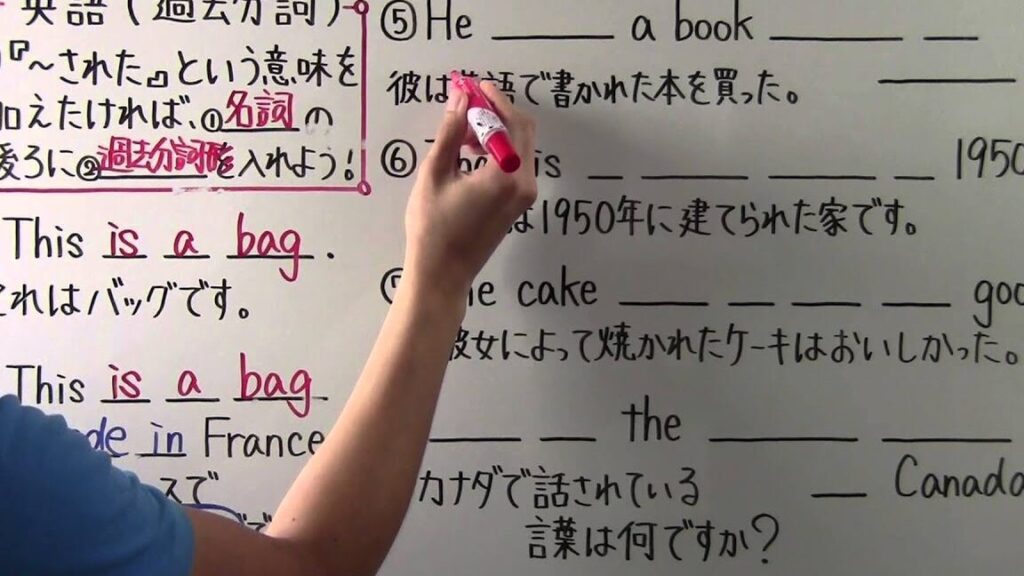 英語(過去分詞)
『~された』という意味を
加えたければ、①名詞の
後ろに②過去分詞を入れよう!
This is a bag.
これはバッグです。
This is a bag
in France
スで
⑤He ______ a book ______ __ ______
彼は 語で書かれた本を買った。
⑥ is __ ______ ______ __ 1950
は1950年に建てられた家です。
cake ______ __ ____ ____
彼女によって焼かれたケーキはおいしかった。
______ ___ the ______ ______
__ Canada
カナダで話されている
言葉は何ですか?